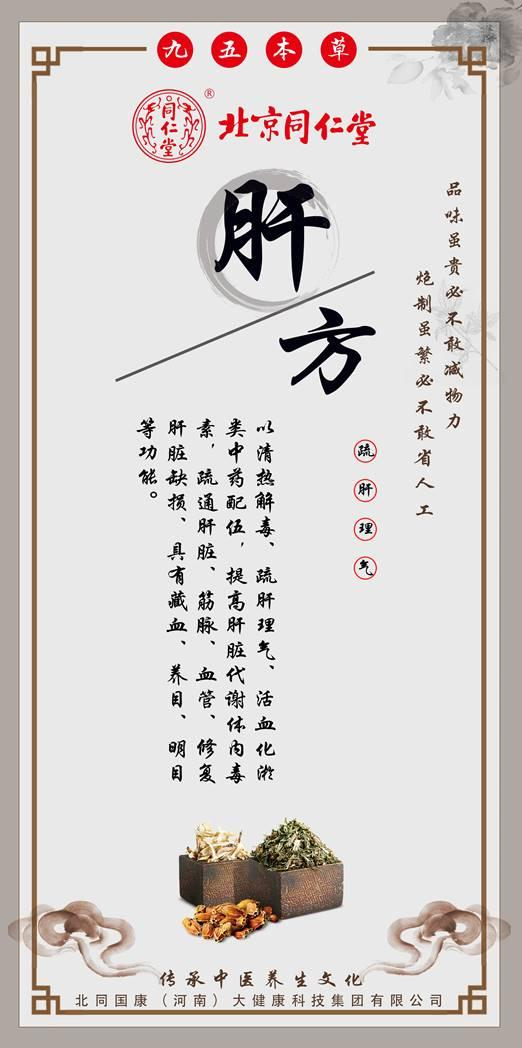 九五本草
同仁堂
®
北京同仁堂
肝
方
品味虽贵必不敢减物力
炮制虽繁必不敢省人工
疏肝理气
以清热解毒、疏肝理气、活血化淤
类中药配伍，提高肝脏代谢体内毒
素，疏通肝脏、筋脉、血管、修复
肝脏缺损、具有藏血、养目、明目
等功能。
传承中医养生文化
北同国康（河南）大健康科技集团有限公司